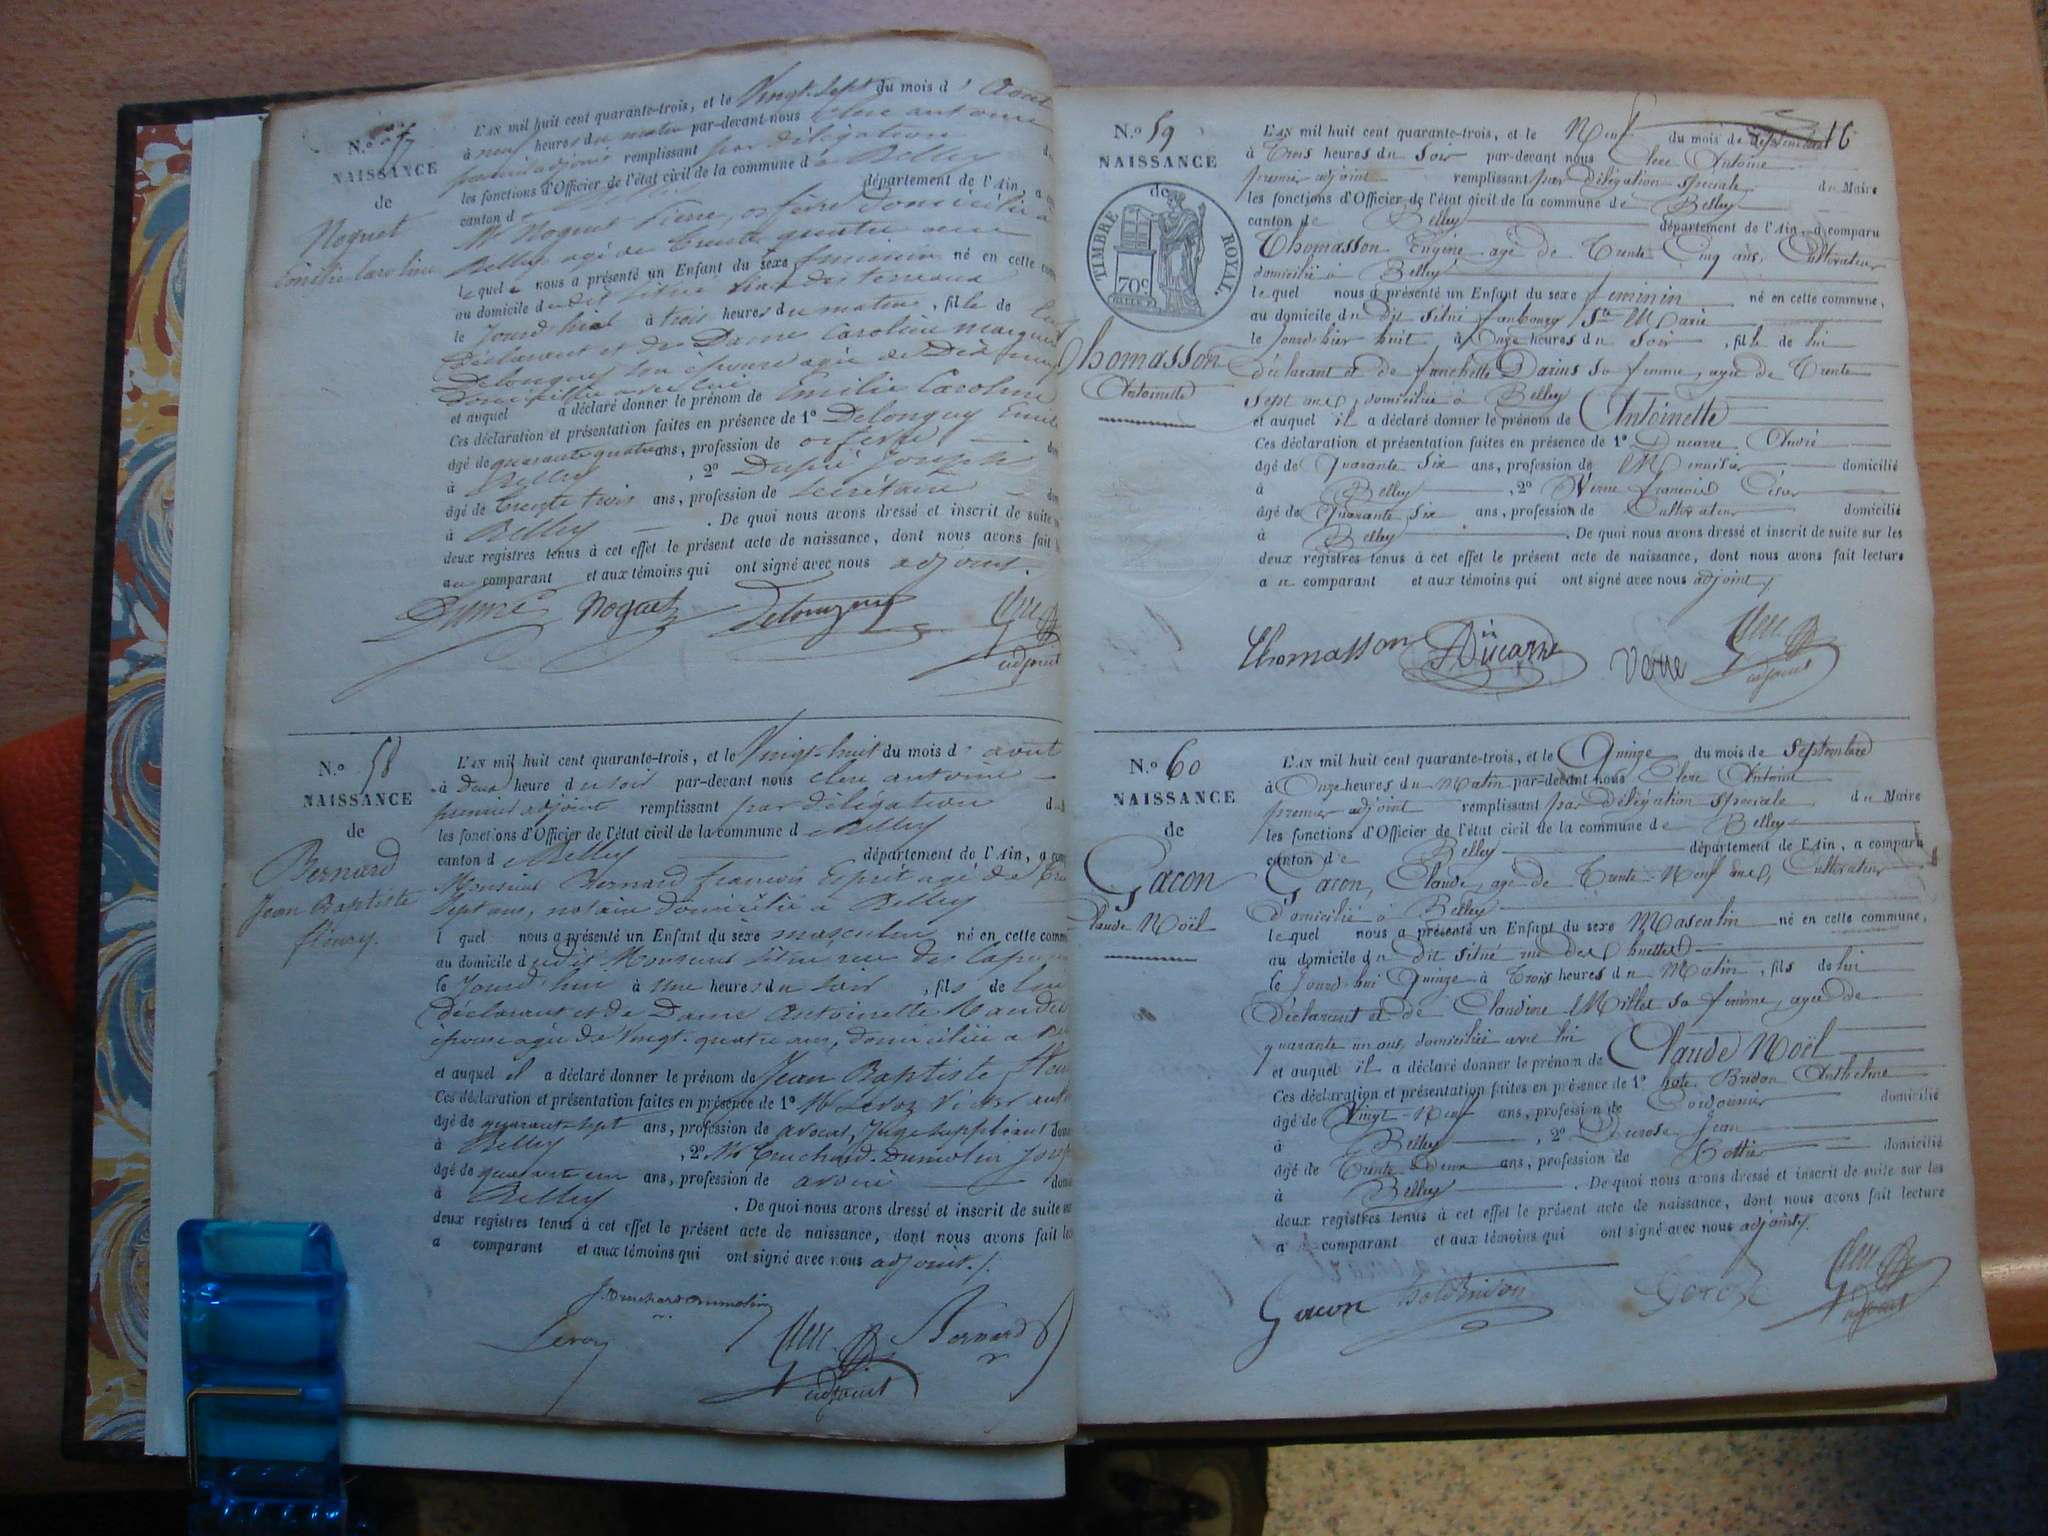 N.º 57
NAISSANCE
de
Noguet
Emilie Caroline
L'AN mil huit cent quarante-trois, et le Vingt-Sept du mois d'Aout
à neuf heures du matin par-devant nous Clerc antoine
premier adjoint remplissant par délégation du
les fonctions d'Officier de l'état civil de la commune de Belley
canton de Belley département de l'Ain, a
Mr Noguet Pierre, orfèvre domicilié à
Belley agé de Trente quatre ans
lequel nous a présenté un Enfant du sexe feminin né en cette
au domicile du dit situé rue des terreaux
le Jourd'hui à trois heures du matin, fille de lui
Déclarant et de Dame Caroline
Delonguey son épouse agée de
domiciliée avec lui
et auquel a déclaré donner le prénom de Emilie Caroline
Ces déclaration et présentation faites en présence de 1º Delonguey
âgé de quarante quatre ans, profession de orfevre
à Belley, 2º Dupré Joseph
âgé de trente trois ans, profession de secrétaire
à Belley. De quoi nous avons dressé et inscrit de suite
deux registres tenus à cet effet le présent acte de naissance, dont nous avons fait
au comparant et aux témoins qui ont signé avec nous adjoint.
Dupré Noguet Delonguey
adjoint
N.º 58
NAISSANCE
de
Bernard
Jean Baptiste
fleury.
L'AN mil huit cent quarante-trois, et le Vingt-huit du mois d'aout
à deux heure du soir par-devant nous clerc antoine
premier adjoint remplissant par délégation du
les fonctions d'Officier de l'état civil de la commune de Belley
canton de Belley département de l'Ain, a
Monsieur Bernard francois Esprit agé de
sept ans, notaire domicilié à Belley
lequel nous a présenté un Enfant du sexe masculin né en cette
au domicile du dit Monsieur situé rue des
le Jourd'hui à une heure du soir, fils de lui
déclarant et de Dame Antoinette
épouse agée de Vingt-quatre ans, domiciliée a
et auquel il a déclaré donner le prénom de Jean Baptiste
Ces déclaration et présentation faites en présence de 1º Mr Leroy Victor
âgé de quarante-sept ans, profession de avocat, Juge suppléant
à Belley, 2º Mr Truchard-Dumolin
âgé de quarante un ans, profession de avoué
à Belley. De quoi nous avons dressé et inscrit de suite
deux registres tenus à cet effet le présent acte de naissance, dont nous avons fait
a comparant et aux témoins qui ont signé avec nous adjoint./.
Leroy Bernard
adjoint
16
N.º 59
NAISSANCE
de
TIMBRE ROYAL.
70c
Thomasson
Antoinette
L'AN mil huit cent quarante-trois, et le Neuf du mois de septembre
à Trois heures du Soir par-devant nous Clerc Antoine
premier adjoint remplissant par délégation spéciale du Maire
les fonctions d'Officier de l'état civil de la commune de Belley
canton de Belley département de l'Ain, a comparu
Thomasson Eugène agé de Trente Cinq ans, Cultivateur
domicilié à Belley
lequel nous a présenté un Enfant du sexe feminin né en cette commune,
au domicile du dit situé faubourg Ste Marie
le Jourd-hier huit à Onze heures du soir, fille de lui
déclarant et de franchette Darius sa femme, agée de Trente
sept ans, domiciliée à Belley
et auquel il a déclaré donner le prénom de Antoinette
Ces déclaration et présentation faites en présence de 1º Ducarre André
âgé de Quarante Six ans, profession de Menuisier domicilié
à Belley, 2º Verne francois César
âgé de Quarante Six ans, profession de Cultivateur domicilié
à Belley. De quoi nous avons dressé et inscrit de suite sur les
deux registres tenus à cet effet le présent acte de naissance, dont nous avons fait lecture
au comparant et aux témoins qui ont signé avec nous adjoint/.
Thomasson Ducarre Verne
adjoint
N.º 60
NAISSANCE
de
Gacon
Claude Noël
L'AN mil huit cent quarante-trois, et le Quinze du mois de Septembre
à Onze heures du Matin par-devant nous Clerc Antoine
premier adjoint remplissant par délégation spéciale du Maire
les fonctions d'Officier de l'état civil de la commune de Belley
canton de Belley département de l'Ain, a comparu
Gacon, Claude, agé de Trente-Neuf ans, Cultivateur
domicilié à Belley
lequel nous a présenté un Enfant du sexe Masculin né en cette commune,
au domicile du dit situé rue des
le Jourd'hui Quinze à Trois heures du Matin, fils de lui
Déclarant et de Claudine Millet sa femme, agée de
quarante un ans, domiciliée avec lui
et auquel il a déclaré donner le prénom de Claude Noël
Ces déclaration et présentation faites en présence de 1º Bridon Anthelme
âgé de Vingt-Neuf ans, profession de Cordonnier domicilié
à Belley, 2º Jean
âgé de Trente-deux ans, profession de Bottier domicilié
à Belley. De quoi nous avons dressé et inscrit de suite sur les
deux registres tenus à cet effet le présent acte de naissance, dont nous avons fait lecture
au comparant et aux témoins qui ont signé avec nous adjoint/.
Gacon
adjoint